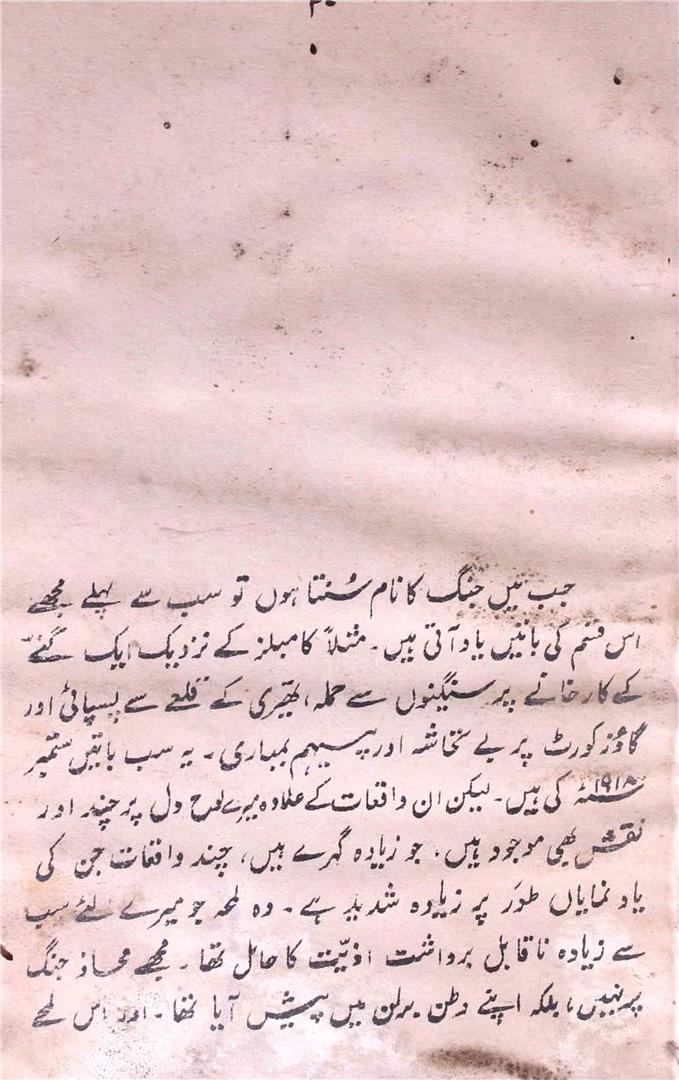 جب میں جنگ کا نام سُنتا ہوں تو سب سے پہلے مجھے
اس قسم کی باتیں یاد آتی ہیں۔ مثلاً کامبلز کے نزدیک ایک گنّے
کے کارخانے پر سنگینوں سے حملہ، تھیری کے قلعے سے پسپائی اور
گاؤزکورٹ پر بے تحاشہ اور پیہم بمباری۔ یہ سب باتیں ستمبر
۱۹۱۸ء کی ہیں۔ لیکن ان واقعات کے علاوہ میرے لوح دل پر چند اور
نقش بھی موجود ہیں، جو زیادہ گہرے ہیں، چند واقعات جن کی
یاد نمایاں طور پر زیادہ شدید ہے۔ وہ لمحہ جو میرے لئے سب
سے زیادہ ناقابل برداشت اذیّت کا حامل تھا۔ مجھے محاذ جنگ
پر نہیں، بلکہ اپنے وطن برلن میں پیش آیا تھا۔ اور اس لمحے